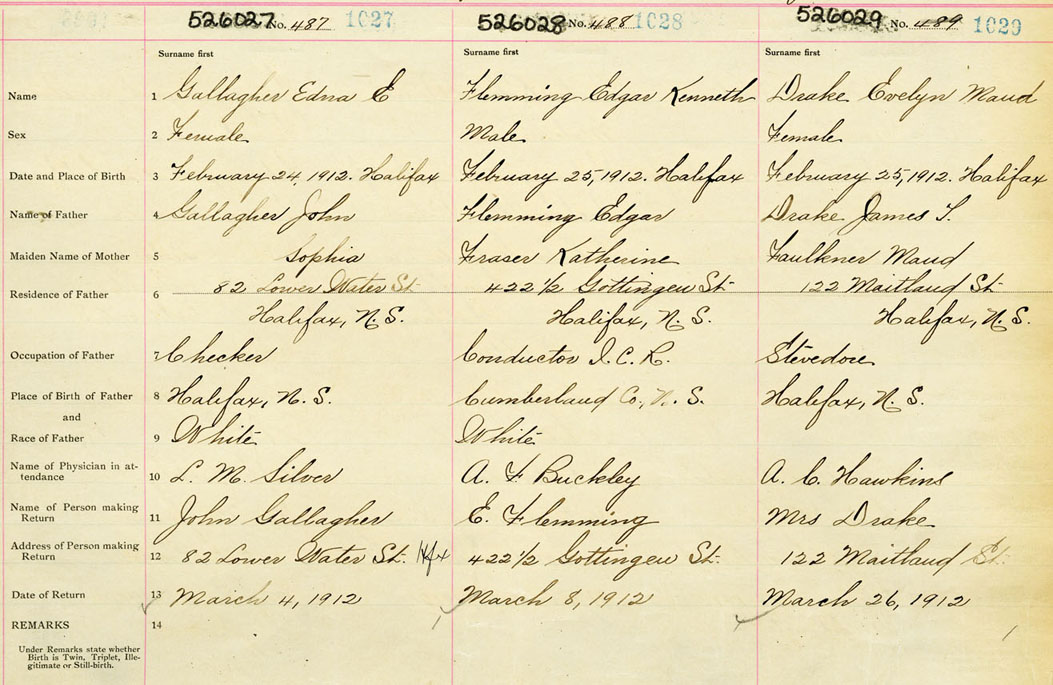 526027 No. 487 1027 526028 No. 488 1028 526029 No. 489 1029
Surname first Surname first Surname first
Name 1 Gallagher Edna E Flemming Edgar Kenneth Drake Evelyn Maud
Sex 2 Female Male Female
Date and Place of Birth 3 February 24, 1912. Halifax February 25, 1912. Halifax February 25, 1912. Halifax
Name of Father 4 Gallagher John Flemming Edgar Drake James T.
Maiden Name of Mother 5 Sophia Fraser Katherine Faulkner Maud
Residence of Father 6 82 Lower Water St. 422 1/2 Gottingen St. 122 Maitland St.
Halifax, N.S. Halifax, N.S. Halifax, N.S.
Occupation of Father 7 Checker Conductor I.C.R. Stevedore
Place of Birth of Father 8 Halifax, N.S. Cumberland Co., N.S. Halifax, N.S.
and
Race of Father 9 White White
Name of Physician in at-
tendance 10 L. M. Silver A. F Buckley A. C. Hawkins
Name of Person making
Return 11 John Gallagher E. Flemming Mrs Drake
Address of Person making
Return 12 82 Lower Water St. Hfx 422 1/2 Gottingen St. 122 Maitland St.
Date of Return 13 March 4, 1912 March 8, 1912 March 26, 1912
REMARKS 14
Under Remarks state whether
Birth is Twin, Triplet, Ille-
gitimate or Still-birth.